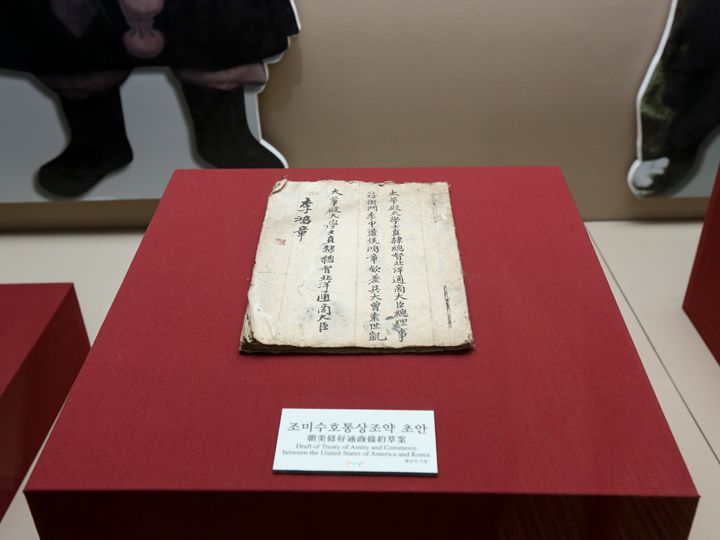 太華殿大學士直隸總督北洋通商大臣總理事
務衙門李中道侯鴻章欽差兵大曾素世凱
大華殿大學士直隸總督北洋通商大臣
李鴻章
조미수호통상조약 초안
朝美修好通商條約草案
Draft of Treaty of Amity and Commerce
between the United States of America and Korea